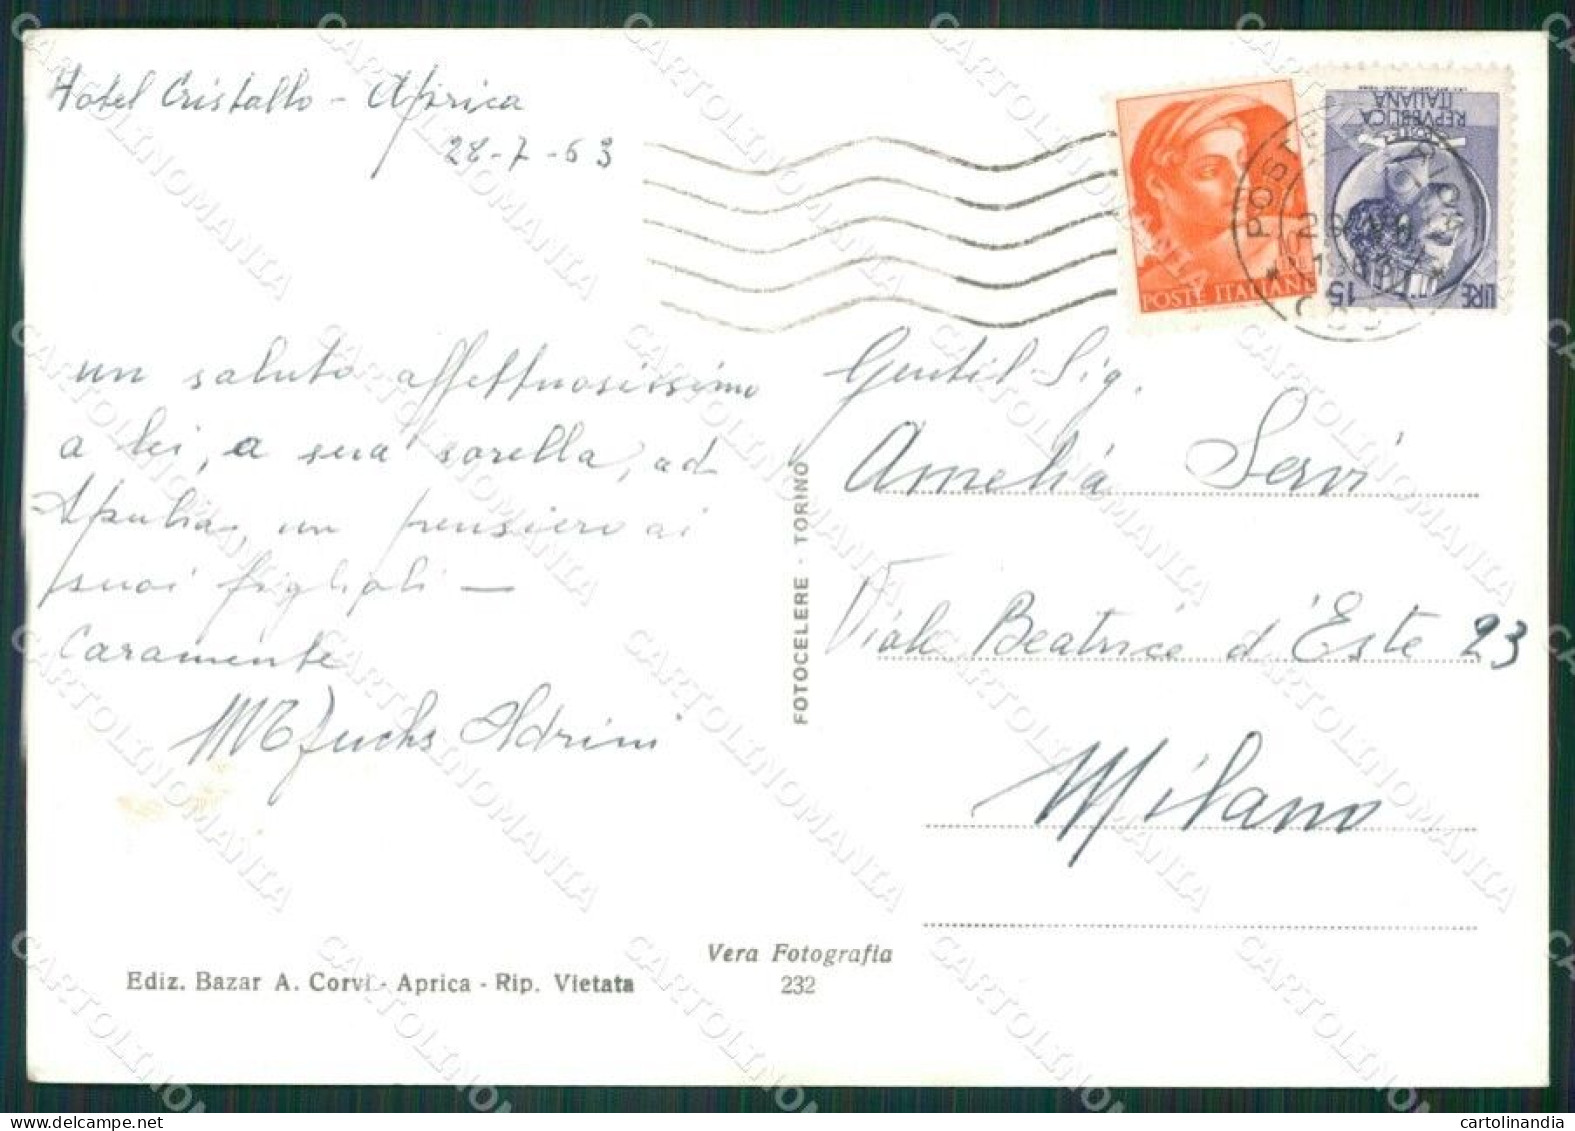 Hotel Cristallo - Aprica
28-7-63
un saluto affettuosissimo
a lei, a sua sorella, ad
Apulia, un pensiero ai
suoi figlioli —
Caramente
Fuchs Adrini
POSTE ITALIANE
REPVBBLICA
ITALIANA
LIRE 15
Gentil Sig.
Amelia Servi
Viale Beatrice d'Este 23
Milano
FOTOCELERE - TORINO
Vera Fotografia
232
Ediz. Bazar A. Corvi - Aprica - Rip. Vietata
CARTOLINOMANIA
cartolinandia